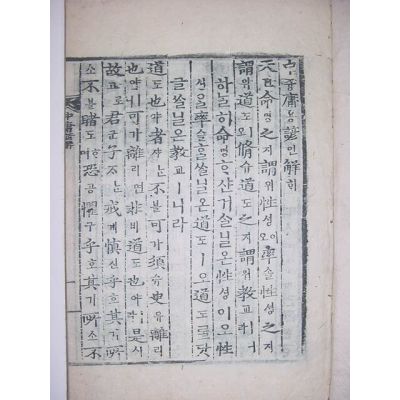 中듕庸용諺언解ᄒᆡ
天텬命명之지謂위性셩이오率솔性셩之지
謂위道도ㅣ오脩슈道도之지謂위敎교ㅣ니라
하ᄂᆞᆯ히命명ᄒᆞ샨거슬닐온性셩이오性
셩을率솔ᄒᆞᆯ쓸닐온道도ㅣ오道도ᄅᆞᆯ닷
글쓸닐온敎교ㅣ니라
道도也야者쟈ᄂᆞᆫ不블可가須슈臾유離리
也야ㅣ니可가離리면非비道도也야ㅣ라是시
故고로君군子ᄌᆞᄂᆞᆫ戒계愼신乎호其기所
소不블睹도ᄒᆞ며恐공懼구乎호其기所소不
中庸諺解